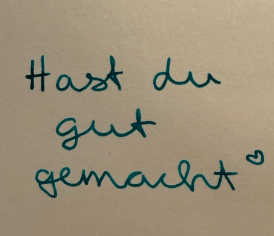 Hast du
gut
gemacht♡